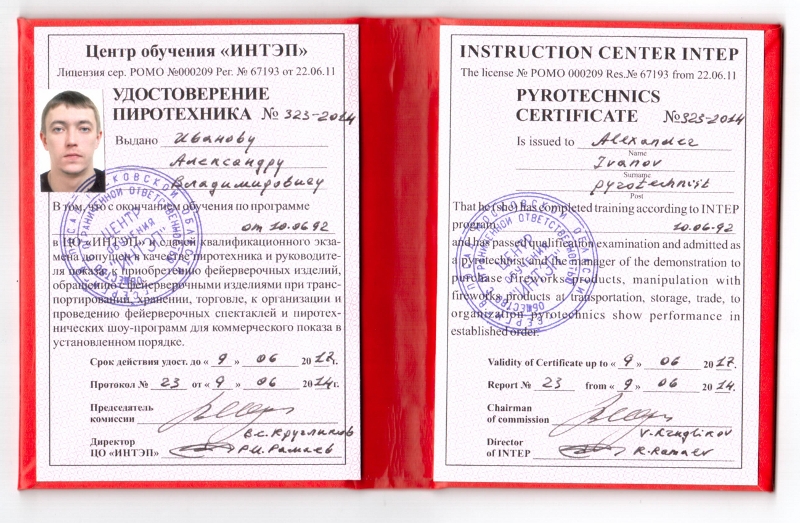 Центр обучения «ИНТЭП»
Лицензия сер. РОМО №000209 Рег. № 67193 от 22.06.11
УДОСТОВЕРЕНИЕ
ПИРОТЕХНИКА № 323-2014
Выдано Иванову
Александру
Владимировичу
В том, что с окончанием обучения по программе
от 10.06.92
в ЦО «ИНТЭП» и сдачей квалификационного экза-
мена допущен в качестве пиротехника и руководите-
ля показа к приобретению фейерверочных изделий,
обращению с фейерверочными изделиями при транс-
портировании, хранении, торговле, к организации и
проведению фейерверочных спектаклей и пиротех-
нических шоу-программ для коммерческого показа в
установленном порядке.
Срок действия удост. до « 9 » 06 2017г.
Протокол № 23 от « 9 » 06 2014г.
Председатель
комиссии
В.С. Кругликов
Директор
ЦО «ИНТЭП» Р.И. Рамаев
INSTRUCTION CENTER INTEP
The license № РОМО 000209 Res.№ 67193 from 22.06.11
PYROTECHNICS
CERTIFICATE №323-2014
Is issued to Alexander
Name
Ivanov
Surname
pyrotechnist
Post
That he (she) has completed training according to INTEP
program 10.06.92
and has passed qualification examination and admitted as
a pyrotechnist and the manager of the demonstration to
purchase fireworks products, manipulation with
fireworks products at transportation, storage, trade, to
organization pyrotechnics show performance in
established order.
Validity of Certificate up to « 9 » 06 2017.
Report № 23 from « 9 » 06 2014.
Chairman
of commission
V. Kruglikov
Director
of INTEP R. Ramaev